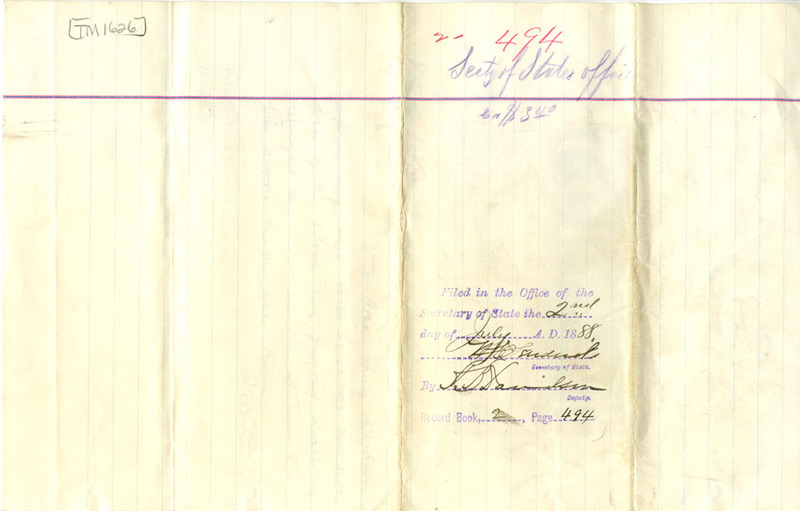 [TM1626]
2 - 494
Secty of States office
$3.00
Filed in the Office of the
Secretary of State the 2nd
day of July A. D. 1888,
Secretary of State.
By
Deputy.
Record Book, 2, Page 494